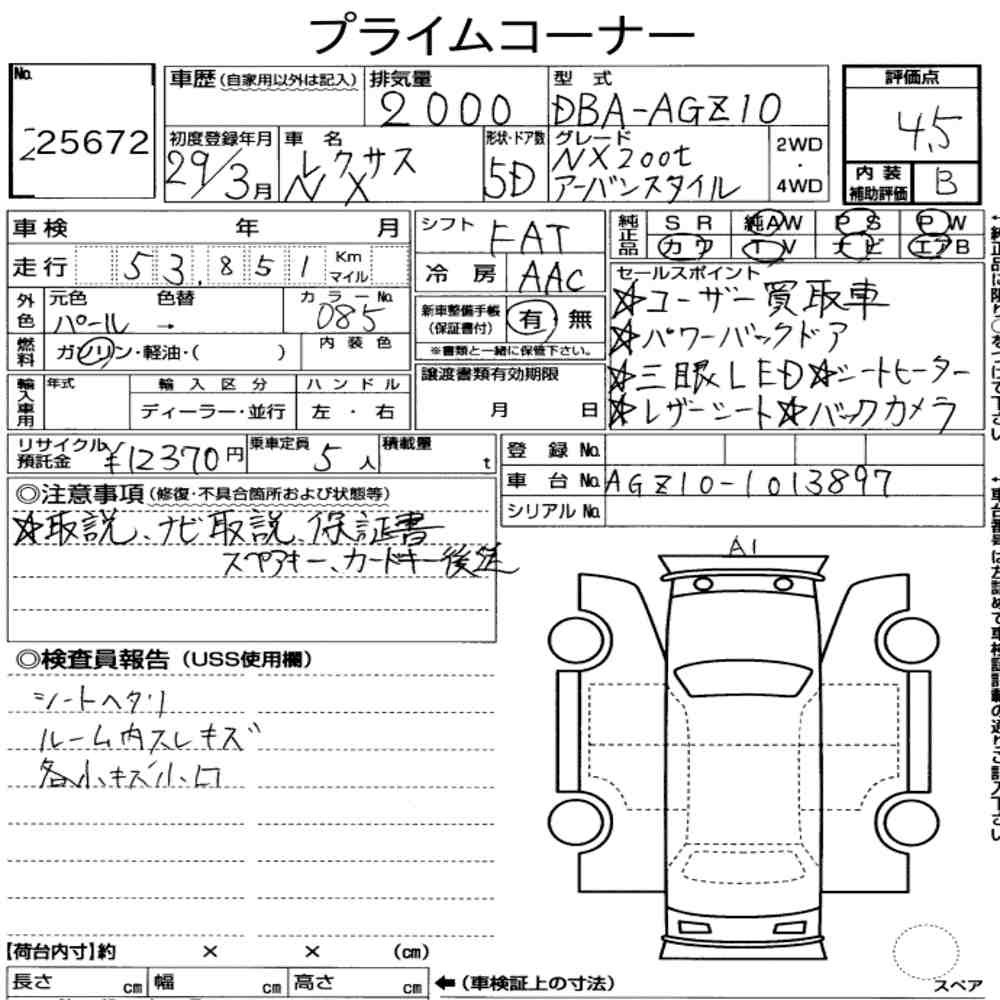 プライムコーナー
No. 25672
車歴(自家用以外は記入) 排気量 2000 型式 DBA-AGZ10 評価点 4.5
初度登録年月 29/3月 車名 レクサス NX 形状・ドア数 5D グレード NX200t アーバンスタイル 2WD・4WD
内装補助評価 B
車検 年 月 シフト FAT
純正品 SR 純AW PS PW
カワ TV ナビ エアB
走行 53,851 Km マイル 冷房 AAC
セールスポイント
☆ユーザー買取車
☆パワーバックドア
☆三眼LED☆シートヒーター
☆レザーシート☆バックカメラ
外色 元色 パール 色替 → カラーNo. 085
新車整備手帳(保証書付) 有 無
※書類と一緒に保管下さい。
燃料 ガソリン・軽油・( ) 内装色
譲渡書類有効期限 月 日
輸入車用 年式 輸入区分 ハンドル
ディーラー・並行 左・右
リサイクル預託金 ¥12370円 乗車定員 5人 積載量 t
登録No.
車台No. AGZ10-1013897
シリアルNo.
◎注意事項(修復・不具合箇所および状態等)
☆取説、ナビ取説、保証書
スペアキー、カードキー後送
◎検査員報告(USS使用欄)
シートヘタリ
ルーム内スレキズ
各小キズ小凹
A1
スペア
【荷台内寸】約 × × (cm)
長さ cm 幅 cm 高さ cm ←(車検証上の寸法)